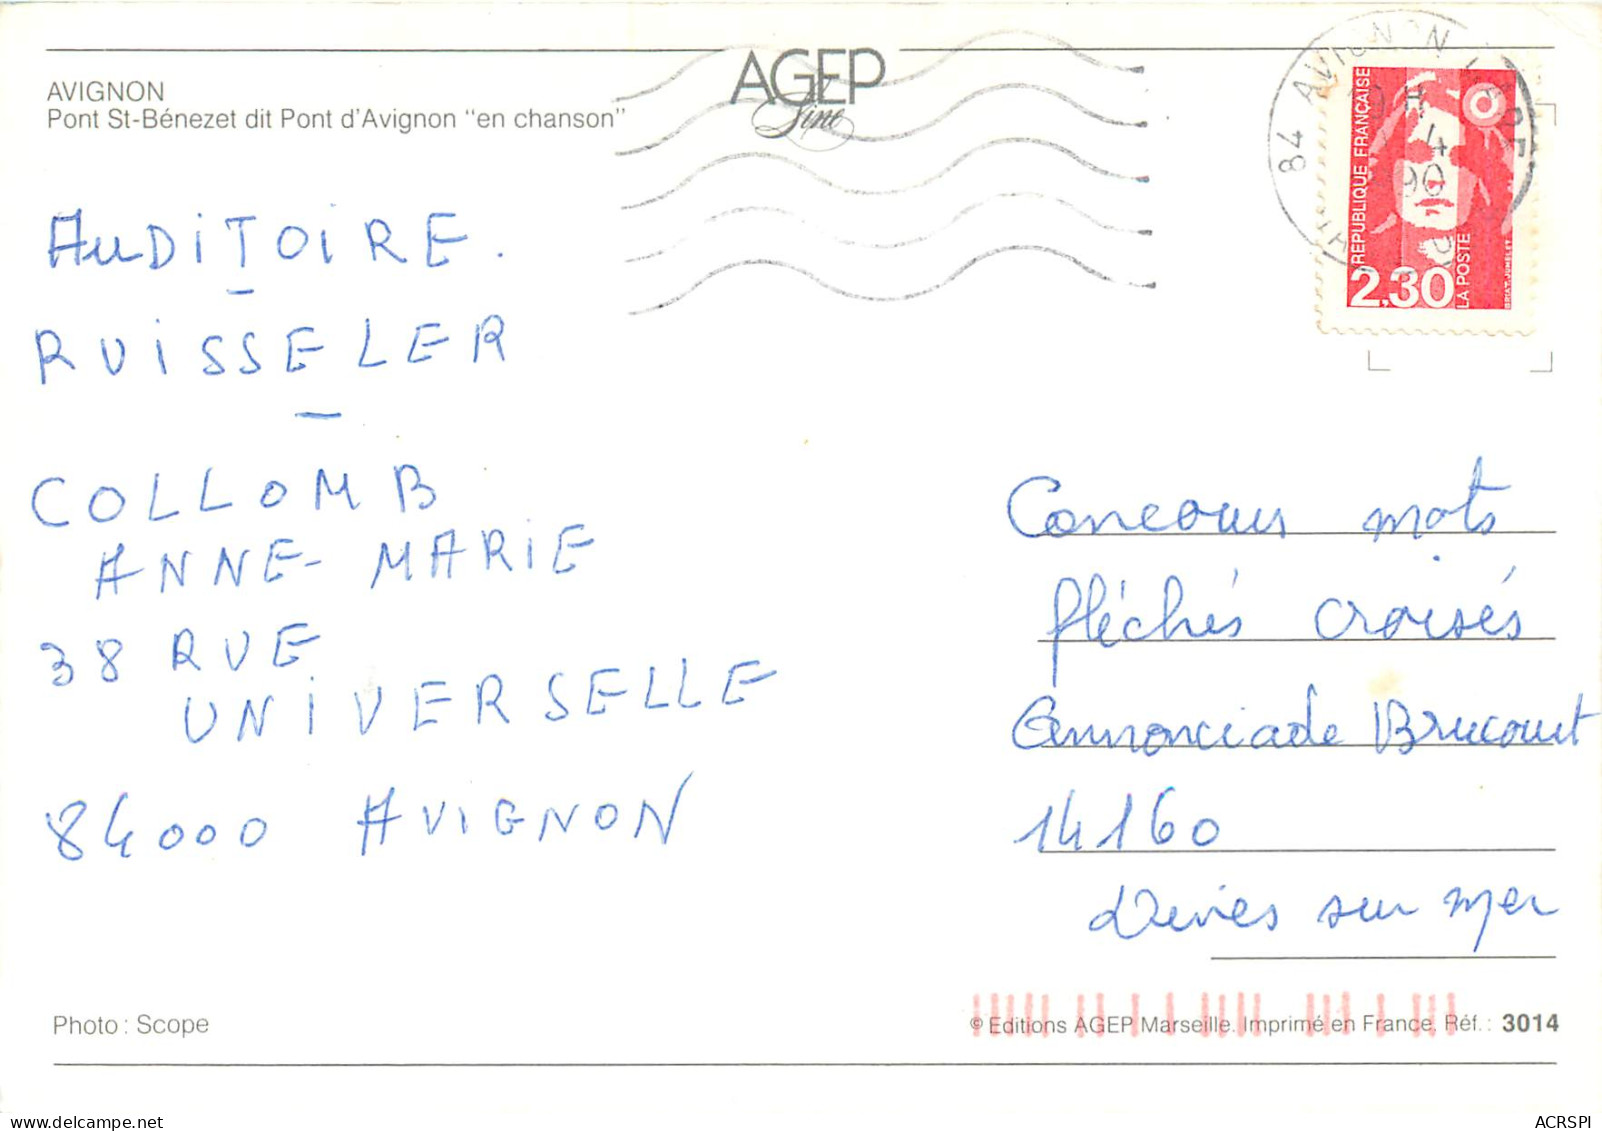 AVIGNON
Pont St-Bénezet dit Pont d'Avignon "en chanson"
AGEP
Fine
84 AVIGNON GARE
4
90
RÉPUBLIQUE FRANÇAISE
2,30
LA POSTE
BRIAT.JUMELET
AuDiTOiRE.
RUiSSELER
COLLOMB
ANNE-MARiE
38 RUE
UNiVERSELLE
84000 AViGNON
Concours mots
fléchés croisés
Annonciade Brucourt
14160
Dives sur mer
Photo : Scope
© Editions AGEP Marseille. Imprimé en France. Réf.: 3014
ACRSPI